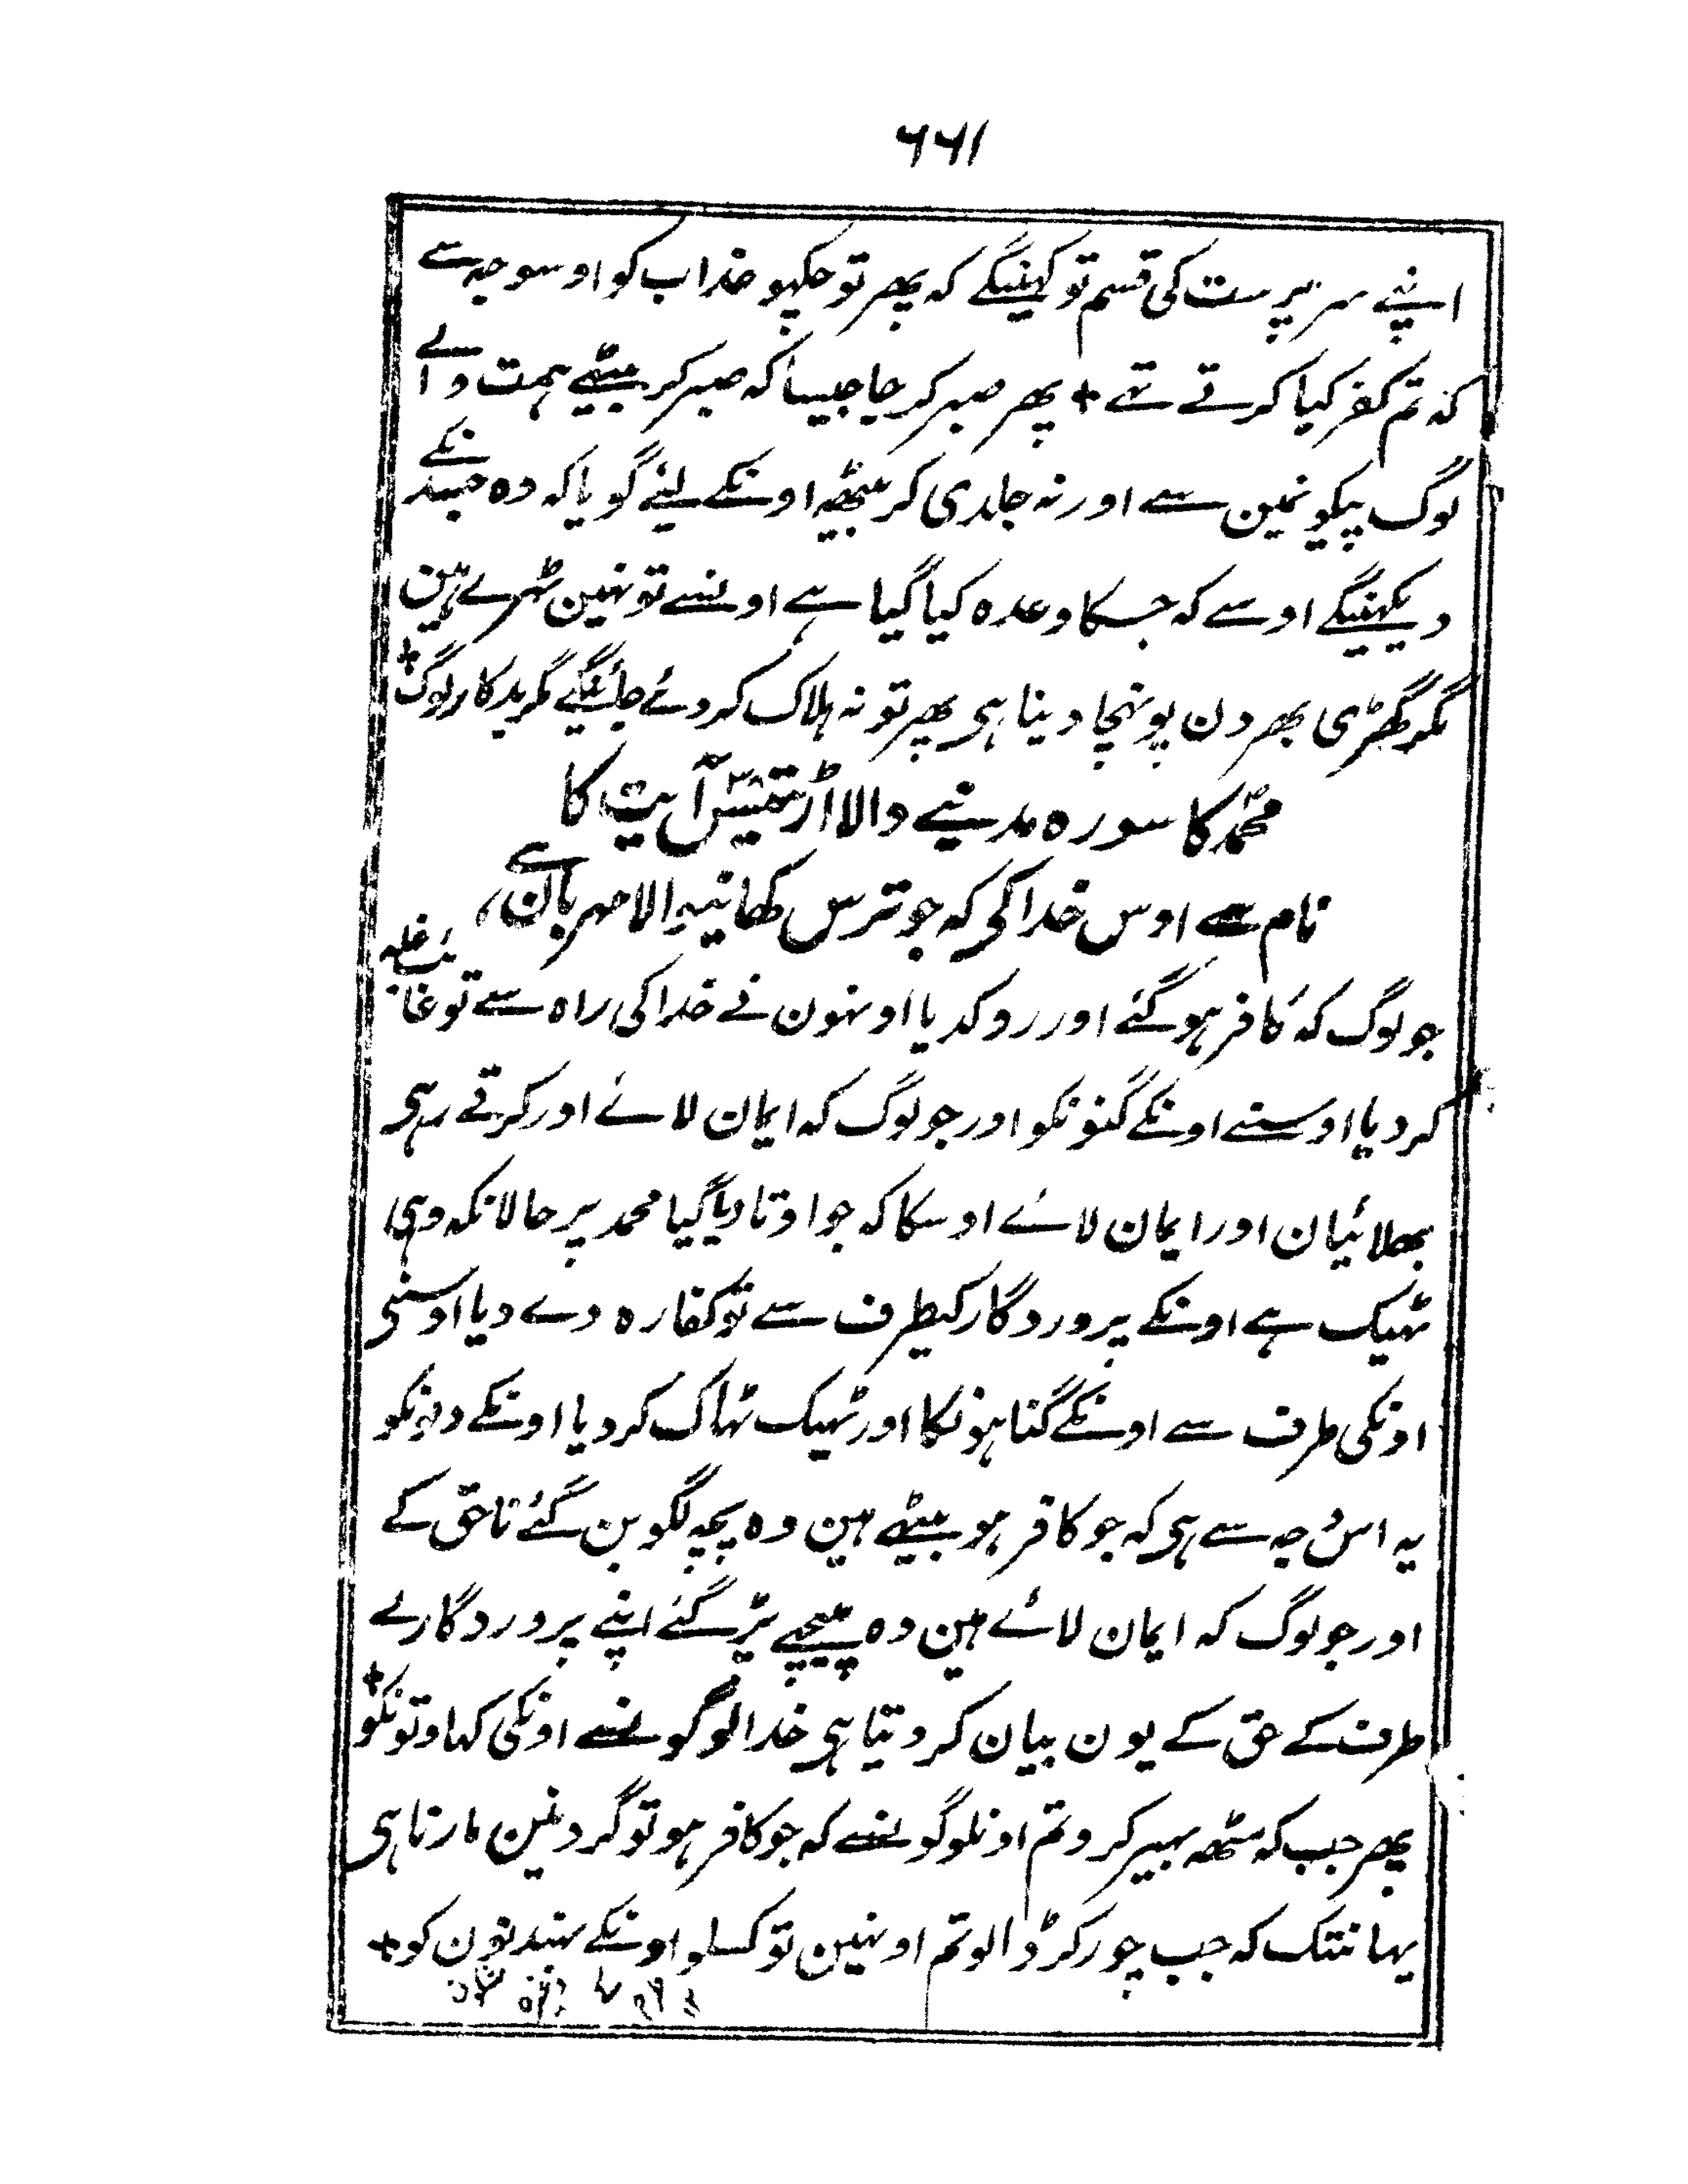 ۶۶۱
اپنے سرپرست کی قسم تو کہینگے کہ پھر تو چکہو عذاب کو اوسوجہ سے
کہ تم کفر کیا کرتے تھے + پھر صبر کر جا جیسا کہ صبر کر بیٹھے ہمت والے
لوگ پیکونمین سے اور نہ جلدی کر بیٹھیہ اونکے لیئے گویا کہ وہ جبدنکے
دیکہینگے اوسے کہ جسکا وعدہ کیا گیا ہے اونسے تو نہین ٹہرے ہین
مگر گھڑی بھر دن پونہچا دینا ہی پھر تو نہ ہلاک کردئے جائینگے مگر بدکار لوگ +
محمد کا سورہ مدینے والا اڑتیس آیت کا ۳۸
نام سے اوس خدا کی کہ جو ترس کھانیوالا مہربان ہے،
جو لوگ کہ کافر ہو گئے اور روکدیا اونہون نے خدا کی راہ سے تو غائب غلہ
کر دیا اوسنے اونکے گنونکو اور جو لوگ کہ ایمان لائے اور کرتے رہی
بھلائیان اور ایمان لائے اوسکا کہ جو اوتا دیا گیا محمد پر حالانکہ وہی
ٹہیک ہے اونکے پروردگار کیطرف سے تو کفارہ دے دیا اوسنی
اونکی طرف سے اونکے گناہونکا اور ٹہیک ٹہاک کردیا اونکے دلونکو
یہ اس وجہ سے ہی کہ جو کافر ہو بیٹھے ہین وہ پچھ لگو بن گئے ناحق کے
اور جو لوگ کہ ایمان لائے ہین وہ پیچھے پڑ گئے اپنے پروردگار کے
طرف کے حق کے یون بیان کر دیتا ہی خدا لوگونسے اونکی کہاوتونکو +
پھر جب کہ مٹھ بہیر کرو تم اونلوگونسے کہ جو کافر ہو تو گردنین مارنا ہی
یہانتک کہ جب چور کر ڈالو تم اونہین تو کسلو اونکے بندنون کو +